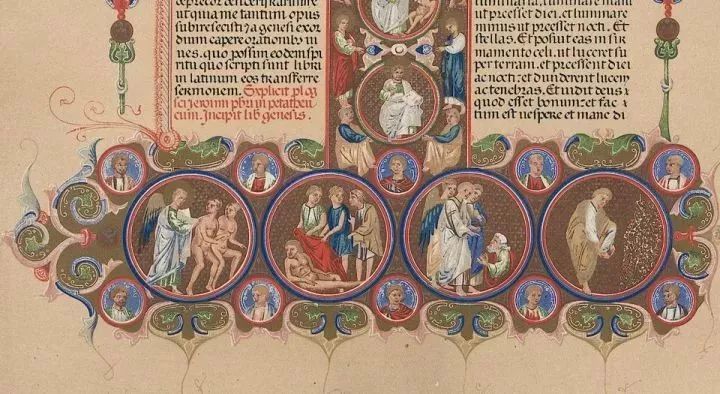 ut quia me tantum opus
subire fecisti ⁊ a genesi exor
dium capere orationibus iu
ves. quo possim eodem spi
ritu quo scripti sunt libri
in latinum eos transferre
sermonem. Explicit
Incipit lib genesis.
luminaria. luminare
ut preesset diei. et luminare
minus ut preesset nocti. Et
stellas. Et posuit eas in fir
mamento celi. ut luceret su
per terram. et preessent diei
ac nocti. et dividerent lucem
ac tenebras. Et vidit deus
quod esset bonum. et fac
tum est vespere et mane di